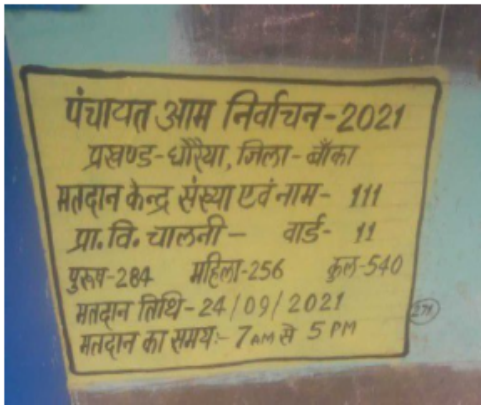 पंचायत आम निर्वाचन-2021
प्रखण्ड-धौरैया, जिला-बाँका
मतदान केन्द्र संख्या एवं नाम- 111
प्रा.वि. चालनी- वार्ड- 11
पुरूष-284 महिला-256 कुल-540
मतदान तिथि-24/09/2021
मतदान का समय:- 7AM से 5 PM